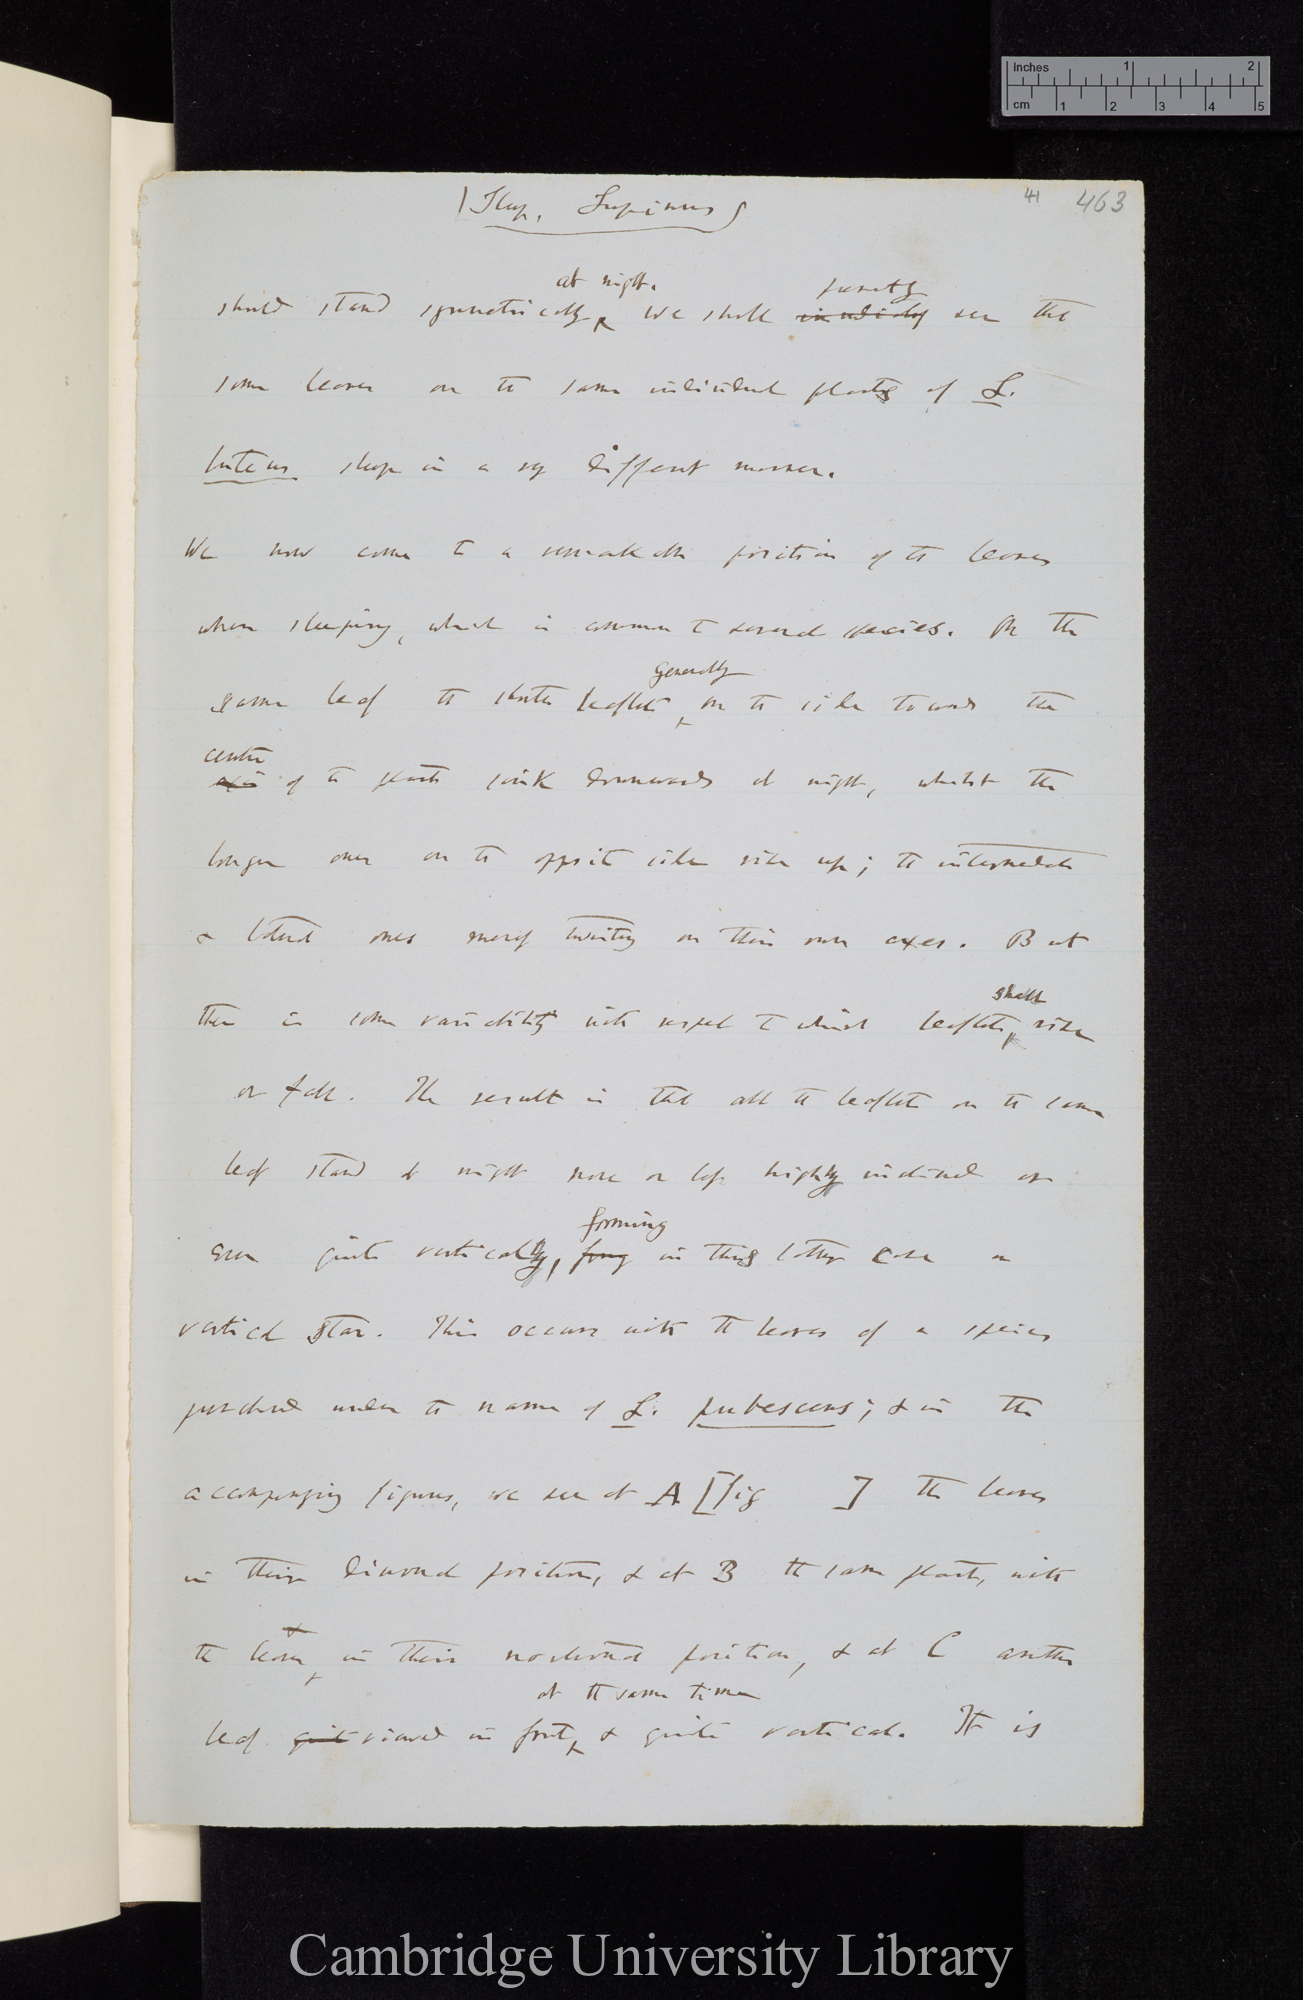 Inches 1 2
cm 1 2 3 4 5
41 463
(Sleep. Lupinus)
at night. presently
should stand symmetrically, We shall immediately see that
some leaves on the same individual plants of L.
luteus sleep in a very different manner.
We now come to a remarkable position of the leaves
when sleeping, which is common to several species. On the
generally
same leaf the shorter leaflets, on the side towards the
centre
axis of the plant sink downwards at night, whilst the
longer ones on the opposite side rise up; the intermediate
& lateral ones merely twisting on their own axes. But
shall
there is some variability with respect to which leaflets rise
or fall. The result is that all the leaflets on the same
leaf stand at night more or less highly inclined or
forming
even quite vertically, fomg in this latter case a
vertical star. This occurs with the leaves of a species
purchased under the name of L. pubescens; & in the
accompanying figures, we see at A [Fig ] the leaves
in their diurnal position, & at B the same plant, with
the leaves, in their nocturnal position, & at C another
at the same time
leaf quite viewed in front, & quite vertical. It is
Cambridge University Library